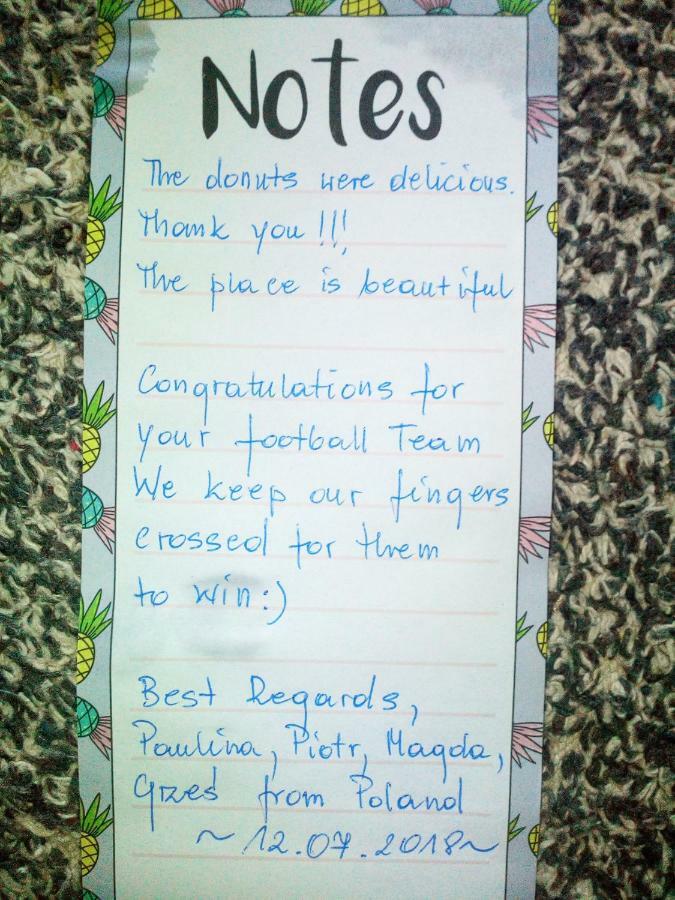 Notes
The donuts were delicious.
Thank you!!!
The place is beautiful
Congratulations for
your football Team
We keep our fingers
crossed for them
to win:)
Best Regards,
Paulina, Piotr, Magda,
Grzes from Poland
~12.07.2018~